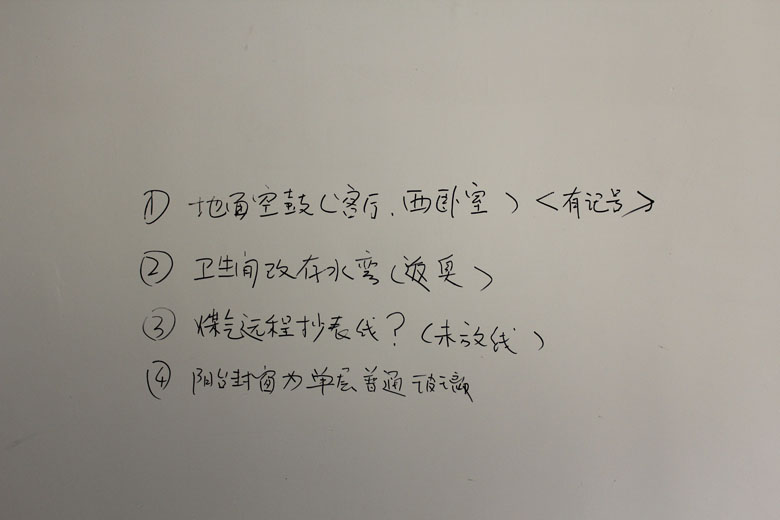 ① 地面空鼓(客厅、西卧室)<有记号>
② 卫生间改存水弯(返臭)
③ 煤气远程抄表线?(未放线)
④ 阳台封窗为单层普通玻璃